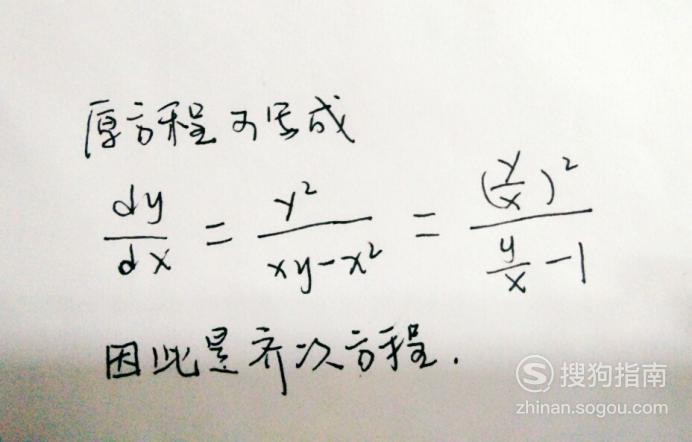 原方程可写成
dy/dx = y²/(xy-x²) = (y/x)²/(y/x - 1)
因此是齐次方程.
搜狗指南
zhinan.sogou.com